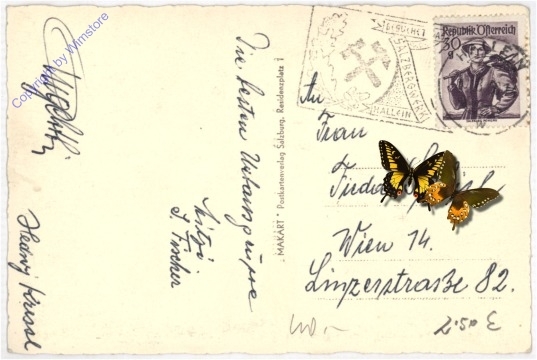 Copyright by Wimstore
Die besten Urlaubsgrüsse
Mitzi
J. Fischer
"MAKART" Postkartenverlag Salzburg, Residenzplatz 1
BESUCHET
SALZBERGWERK
HALLEIN
Republik Österreich
30 g
HALLEIN
An
Frau
Wien 14.
Linzerstraße 82.
2.50 E